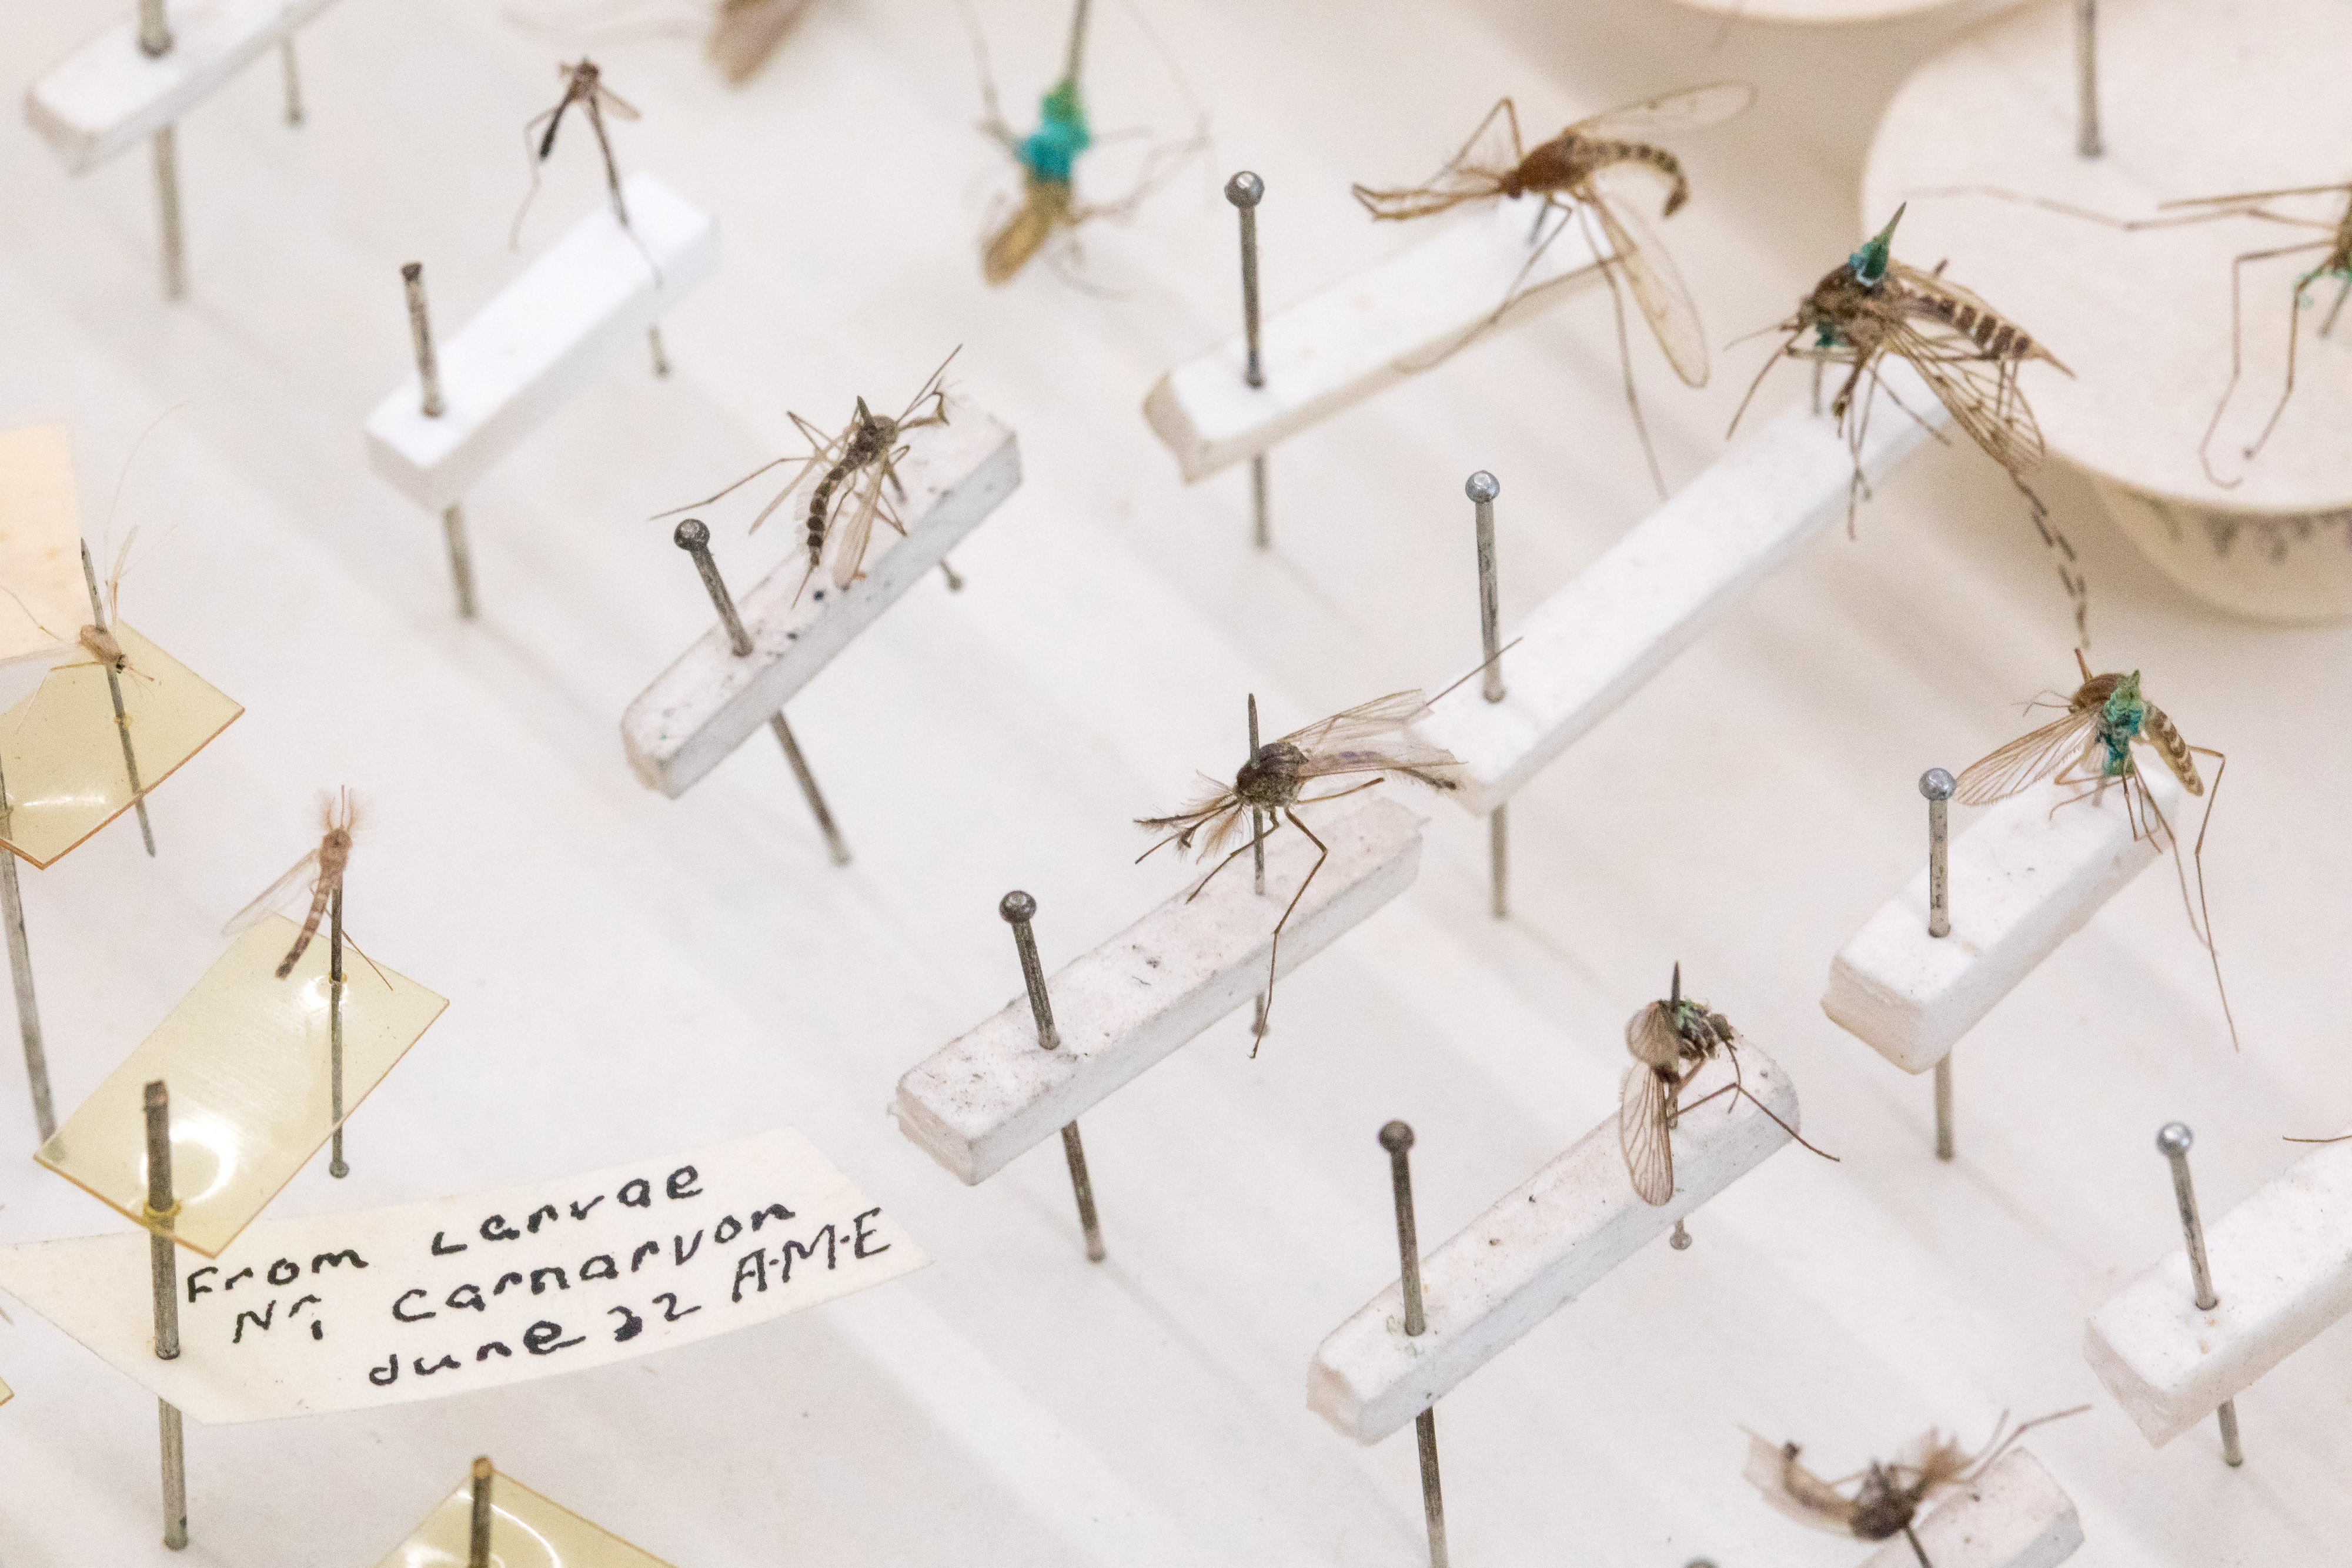 From Larvae
Nr. Carnarvon
June 22 A.M.E